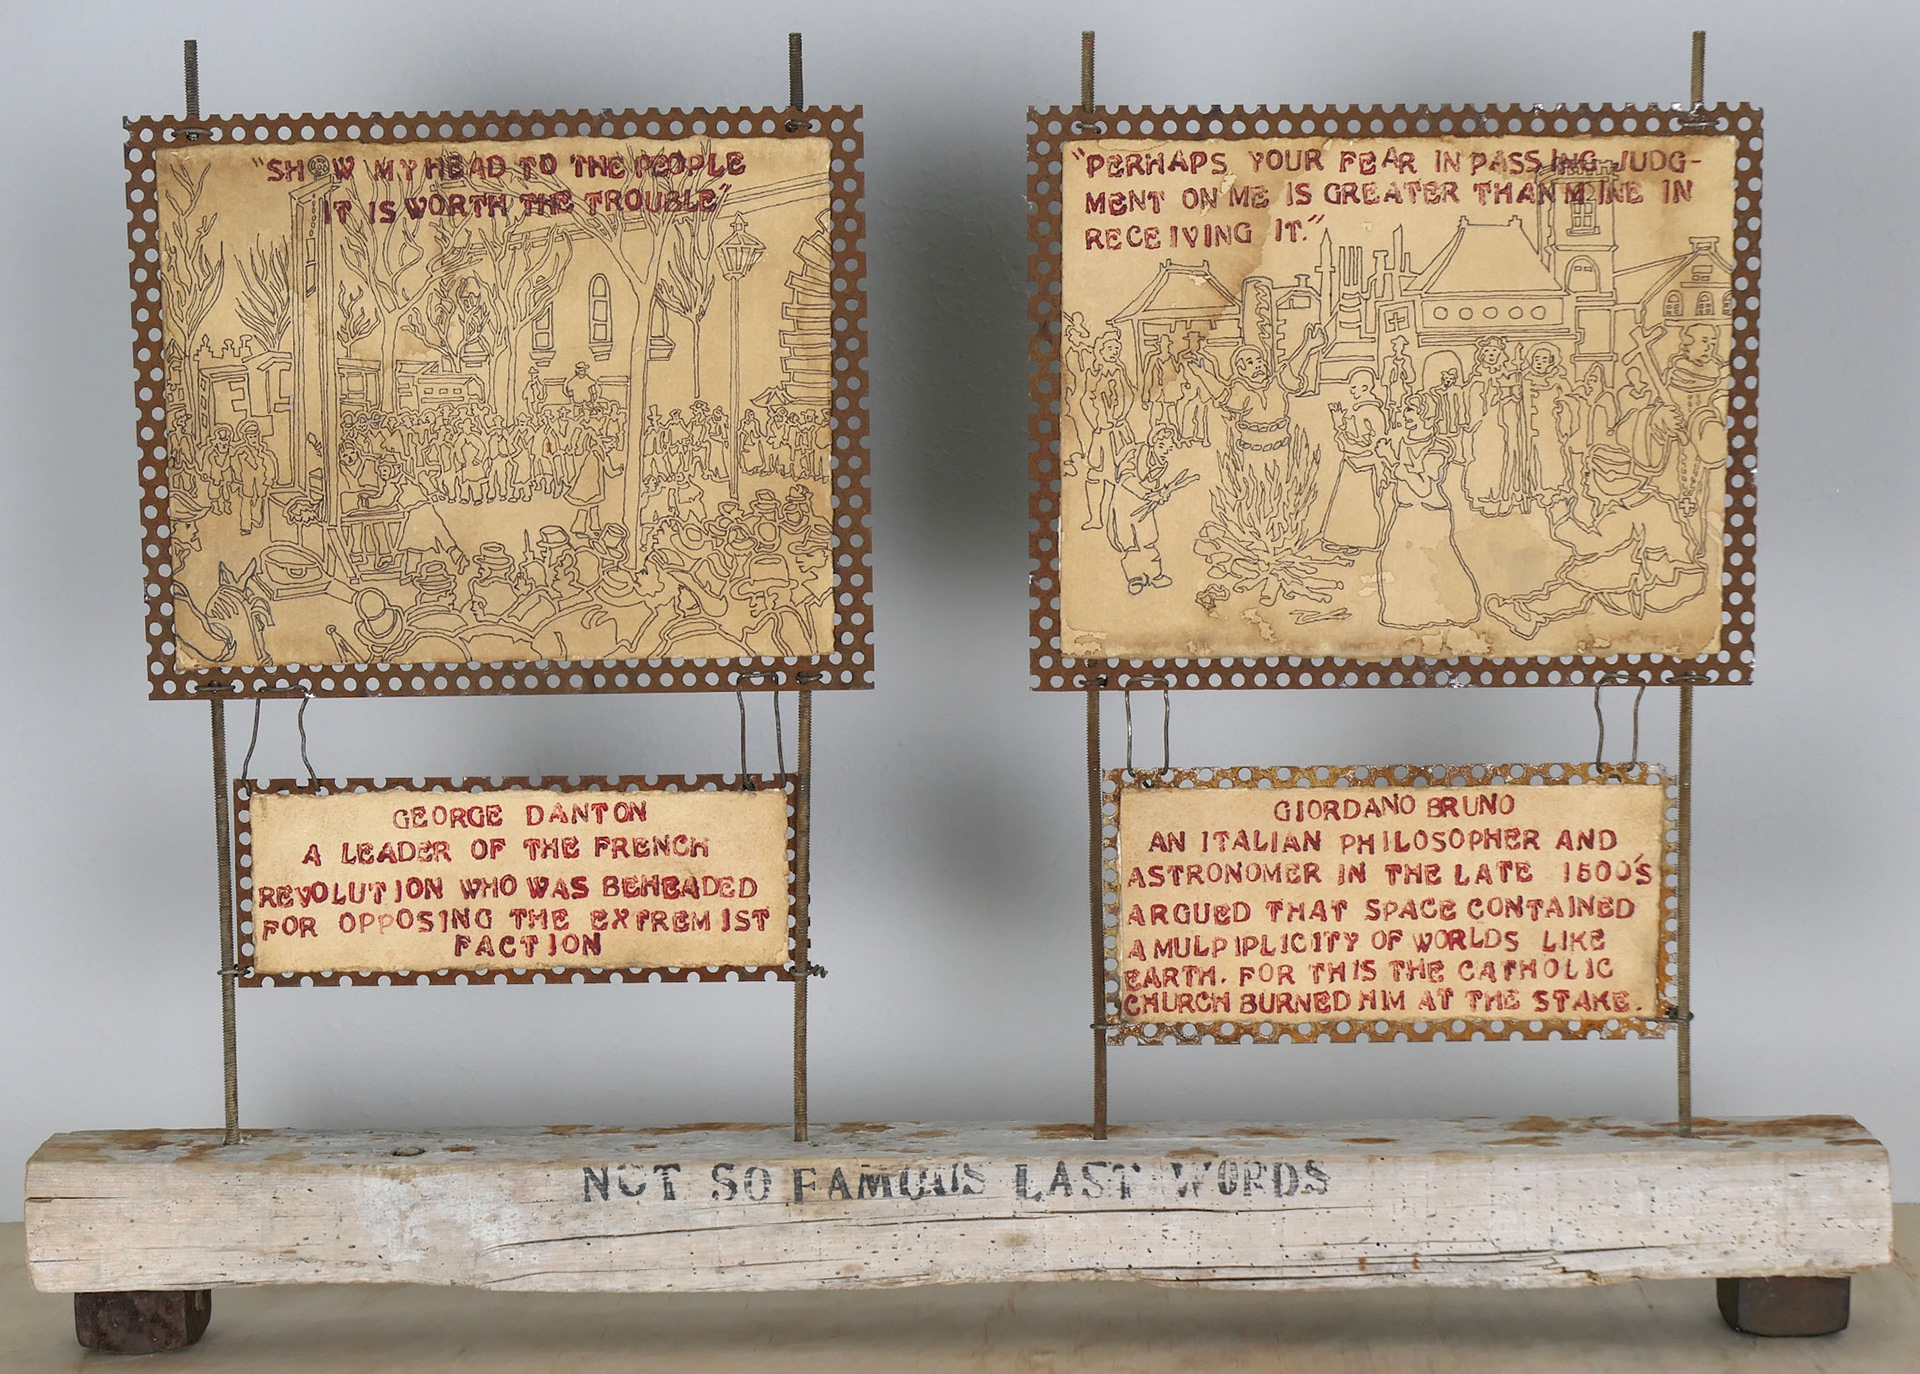 "SHOW MY HEAD TO THE PEOPLE
IT IS WORTH THE TROUBLE"
GEORGE DANTON
A LEADER OF THE FRENCH
REVOLUTION WHO WAS BEHEADED
FOR OPPOSING THE EXTREMIST
FACTION
"PERHAPS YOUR FEAR IN PASSING JUDG-
MENT ON ME IS GREATER THAN MINE IN
RECEIVING IT."
GIORDANO BRUNO
AN ITALIAN PHILOSOPHER AND
ASTRONOMER IN THE LATE 1500'S
ARGUED THAT SPACE CONTAINED
A MULPIPLICITY OF WORLDS LIKE
EARTH. FOR THIS THE CATHOLIC
CHURCH BURNED HIM AT THE STAKE.
NOT SO FAMOUS LAST WORDS